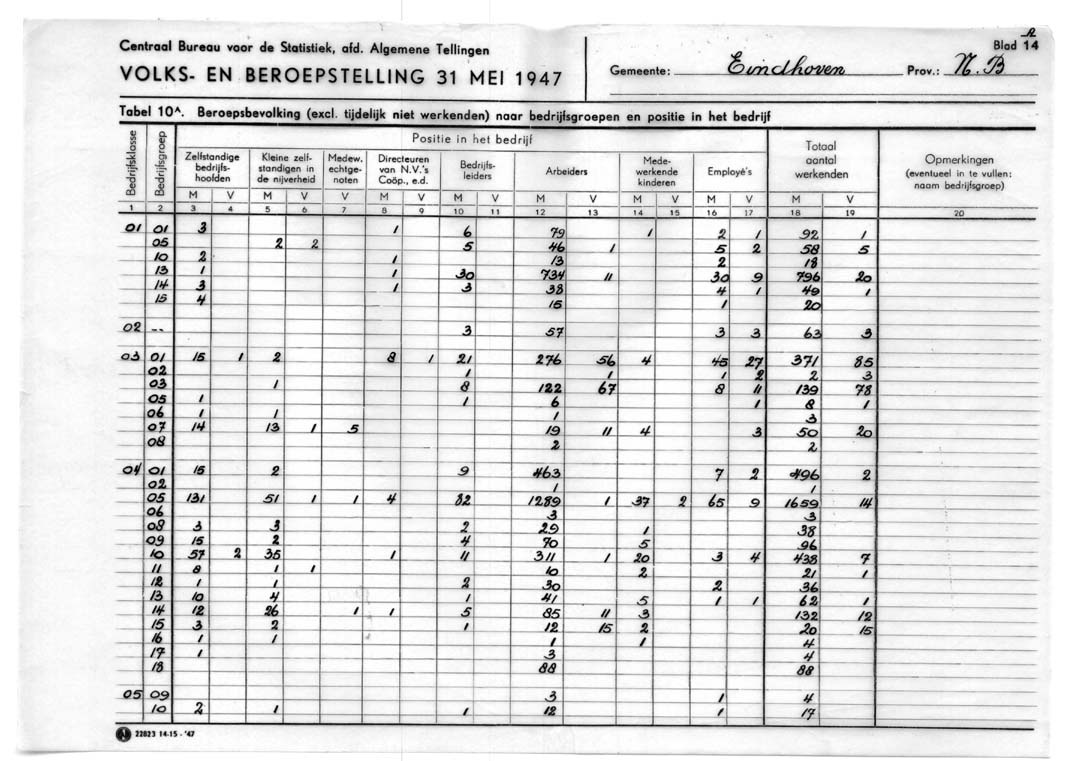 R
Centraal Bureau voor de Statistiek, afd. Algemene Tellingen
Blad 14
VOLKS- EN BEROEPSTELLING 31 MEI 1947
Gemeente: Eindhoven Prov.: N.B
Tabel 10A. Beroepsbevolking (excl. tijdelijk niet werkenden) naar bedrijfsgroepen en positie in het bedrijf
Bedrijfsklasse Bedrijfsgroep Positie in het bedrijf Totaal aantal werkenden Opmerkingen (eventueel in te vullen: naam bedrijfsgroep)
Zelfstandige bedrijfs-hoofden Kleine zelf-standigen in de nijverheid Medew. echtge-noten Directeuren van N.V.'s Coöp., e.d. Bedrijfs-leiders Arbeiders Mede-werkende kinderen Employé's
M V M V V M V M V M V M V M V M V
1 2 3 4 5 6 7 8 9 10 11 12 13 14 15 16 17 18 19 20
01 01 3 1 6 79 1 2 1 92 1
05 2 2 5 46 1 5 2 58 5
10 2 1 13 2 18
13 1 1 30 734 11 30 9 796 20
14 3 1 3 38 4 1 49 1
15 4 15 1 20
02 -- 3 57 3 3 63 3
03 01 15 1 2 8 1 21 276 56 4 45 27 371 85
02 1 1 1 2 2 3
03 1 8 122 67 8 11 139 78
05 1 1 6 1 8 1
06 1 1 1 3
07 14 13 1 5 19 11 4 3 50 20
08 2 2
04 01 15 2 9 463 7 2 496 2
02 1 1
05 131 51 1 1 4 82 1289 1 37 2 65 9 1659 14
06 3 3
08 3 3 2 29 1 38
09 15 2 4 70 5 96
10 57 2 35 1 11 311 1 20 3 4 438 7
11 8 1 1 10 2 21 1
12 1 1 2 30 2 36
13 10 4 1 41 5 1 1 62 1
14 12 26 1 1 5 85 11 3 132 12
15 3 2 1 12 15 2 20 15
16 1 1 1 1 4
17 1 3 4
18 88 88
05 09 3 1 4
10 2 1 1 12 1 17
22823 14-15 - '47